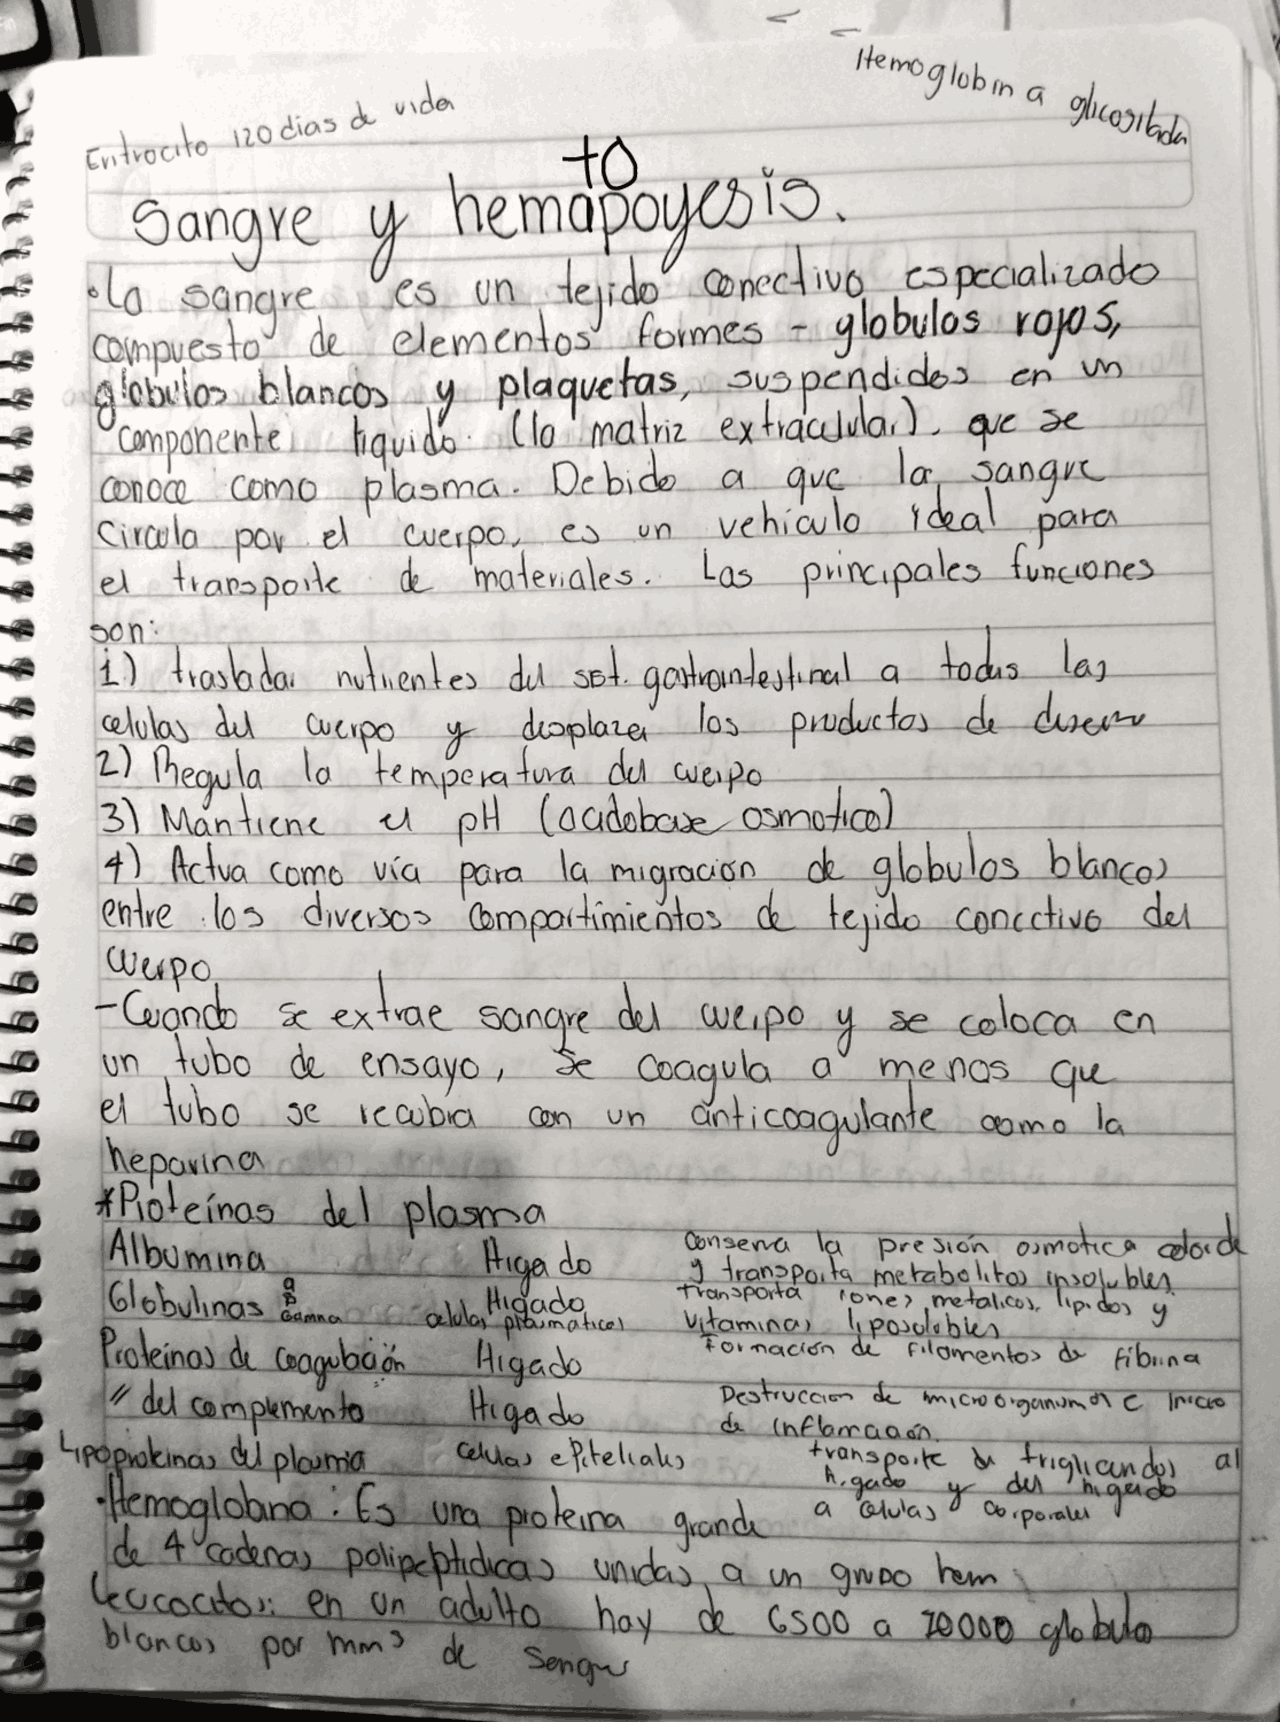 Hemoglobina glicosilada
Eritrocito 120 dias de vida
to
Sangre y hemapoyesis.
•La sangre es un tejido conectivo especializado
compuesto de elementos formes - globulos rojos,
globulos blancos y plaquetas, suspendidos en un
componente liquido. (la matriz extracelular), que se
conoce como plasma. Debido a que la sangre
circula por el cuerpo, es un vehículo ideal para
el transporte de materiales. Las principales funciones
son:
1.) trasladar nutrientes del sist. gastrointestinal a todas las
celulas del cuerpo y desplazar los productos de
2) Regula la temperatura del cuerpo
3) Mantiene el pH (acidobase osmotico)
4) Actua como vía para la migración de globulos blancos
entre los diversos compartimientos de tejido conectivo del
cuerpo
-Cuando se extrae sangre del cuerpo y se coloca en
un tubo de ensayo, se coagula a menos que
el tubo se recubra con un anticoagulante como la
heparina
*Proteínas del plasma
Albumina Higado Conserva la presión osmotica coloide
y transporta metabolitos insolubles.
Globulinas α β Gamna Higado celulas plasmaticas transporta iones metalicos, lipidos y
vitaminas liposolubles
Proteinas de coagulación Higado Formación de filamentos de fibrina
" del complemento Higado Destruccion de microorganismos e inicio
de inflamación.
Lipoproteinas del plasma celulas epiteliales transporte de trigliceridos al
higado y del higado
a celulas corporales
•Hemoglobina: Es una proteina grande
de 4 cadenas polipeptidicas unidas a un grupo hem
Leucocitos: en un adulto hay de 6500 a 10000 globulo
blancos por mm³ de sangre